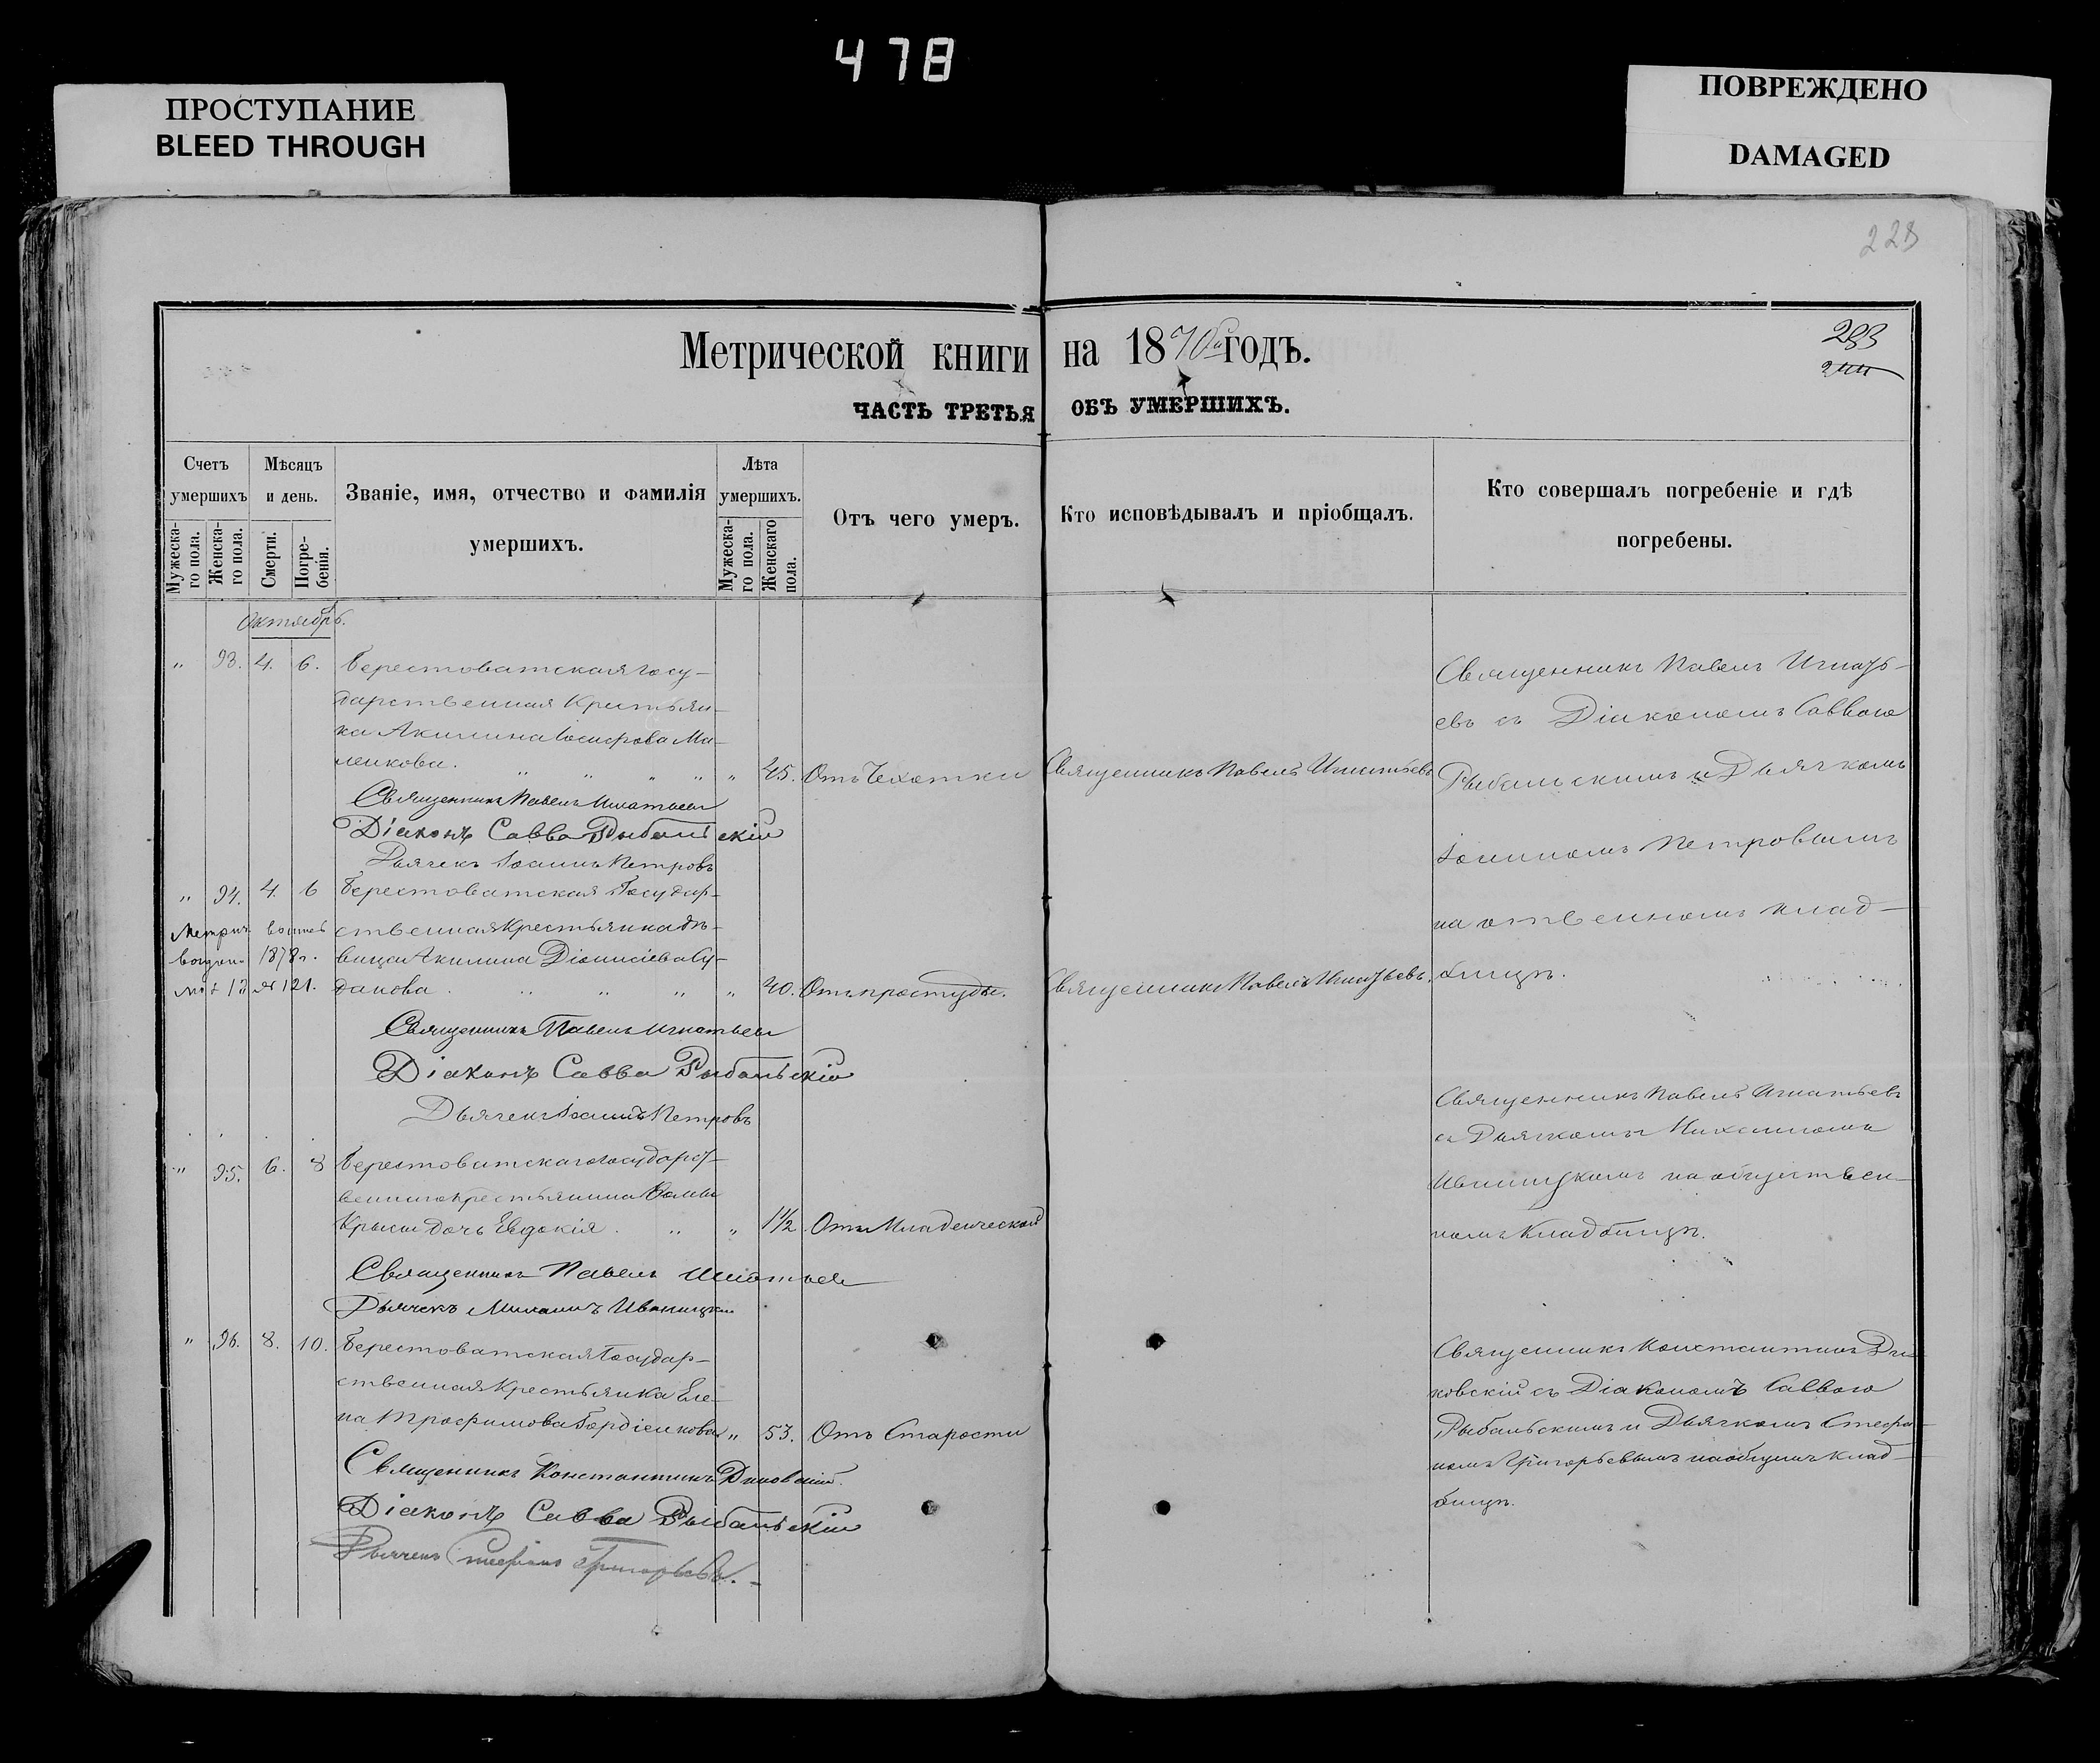 478
ПРОСТУПАНИЕ
BLEED THROUGH
ПОВРЕЖДЕНО
DAMAGED
228
Метрической книги на 1870й годъ.
283
ЧАСТЬ ТРЕТЬЯ ОБЪ УМЕРШИХЪ.
Счетъ умершихъ
Мужеска-го пола.
Женска-го пола.
Мѣсяцъ и день.
Смерти.
Погре-бенія.
Званіе, имя, отчество и фамилія умершихъ.
Лѣта умершихъ.
Мужеска-го пола.
Женскаго пола.
Отъ чего умеръ.
Кто исповѣдывалъ и пріобщалъ.
Кто совершалъ погребеніе и гдѣ погребены.
Октябрь.
" 93. 4. 6. Берестоватская Госу-
дарственная Крестьян-
ка Акилина Іосифова Ма-
ленкова. " " " " " 45. Отъ Чахотки Священникъ Павелъ Игнатьевъ
Священникъ Павелъ Игнатьевъ
Діаконъ Савва Рыбальскій
Дьячекъ Іоаннъ Петровъ
Священникъ Павелъ Игнать-
евъ съ Діакономъ Саввою
Рыбальскимъ и Дьячкомъ
Іоанномъ Петровымъ
на клад-
бищѣ.
" 94. 4. 6 Берестоватская Государ-
ственная Крестьянка дѣ-
вица Акилина Діонисіева Су-
данова . " " " " 40. Отъ простуды. Священникъ Павелъ Игнатьевъ.
1878 г.
№ 121.
Священникъ Павелъ Игнатьевъ
Діаконъ Савва Рыбальскій
Дьячекъ Іоаннъ Петровъ
" 95. 6. 8 Берестоватскаго Государст-
веннаго крестьянина
дочь Евдокія . " " 1½ Отъ Младенческой
Священникъ Павелъ Игнатьевъ
Дьячекъ Михаилъ Иваницкій
Священникъ Павелъ Игнатьевъ
съ Дьячкомъ Михаиломъ
Иваницкимъ на обществен-
номъ Кладбищѣ.
" 96. 8. 10. Берестоватская Государ-
ственная Крестьянка Еле-
на Трофимова Гордіенкова " 53. Отъ Старости
Священникъ Константинъ Диковскій.
Діаконъ Савва Рыбальскій
Дьячекъ Стефанъ Григорьевъ.
Священникъ Константинъ Ди-
ковскій съ Діакономъ Саввою
Рыбальскимъ и Дьячкомъ Стефа-
номъ Григорьевымъ на общемъ клад-
бищѣ.